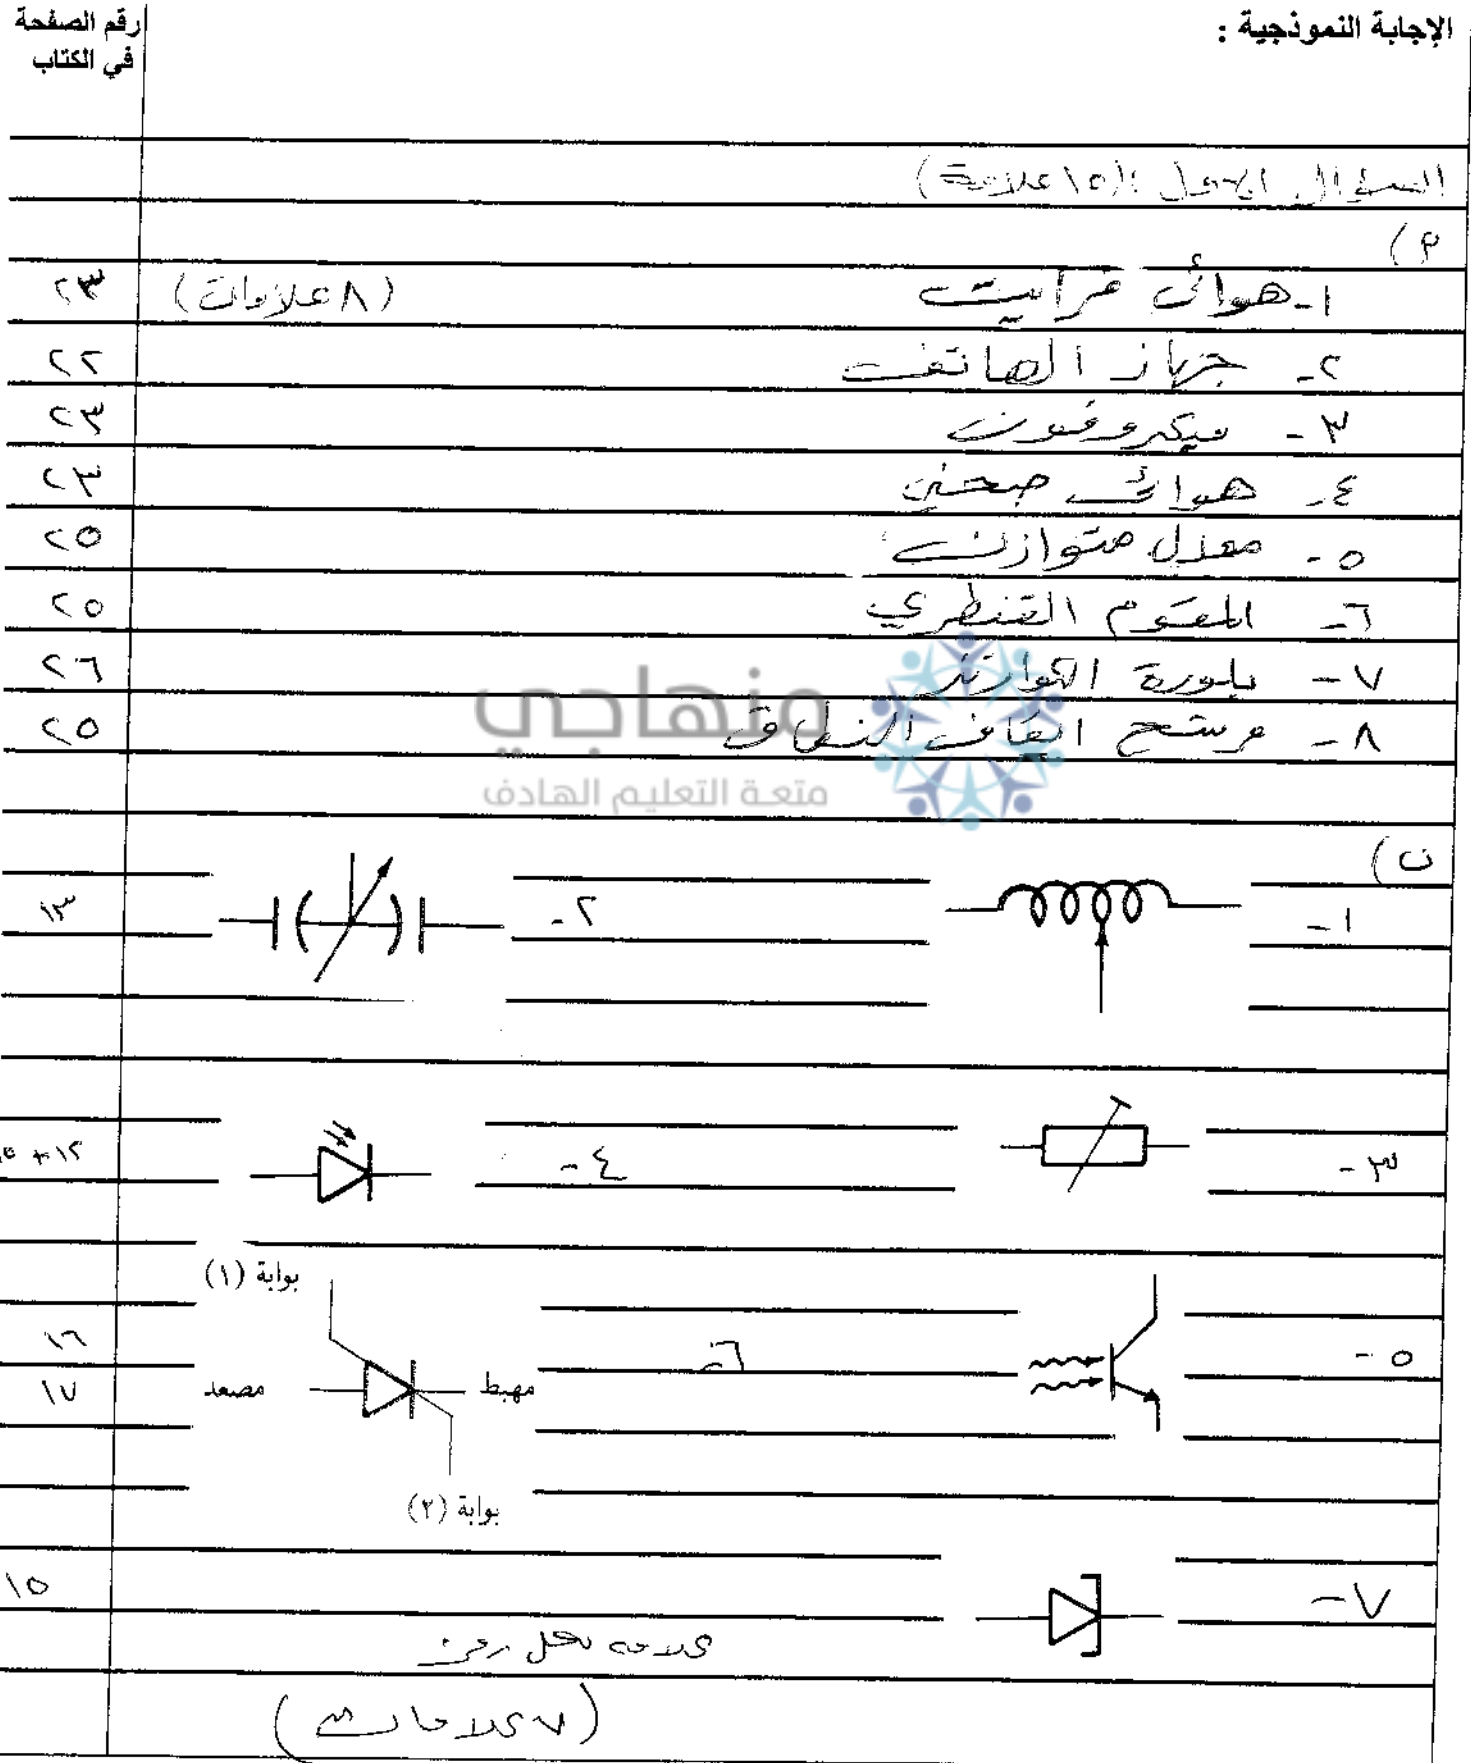 الإجابة النموذجية :
رقم الصفحة
في الكتاب
السؤال الاول : (١٥ علامة)
٢) 
١- هوائي فرايت (٨ علامات) ٢٣
٢- جهاز الهاتف ٢٢
٣- ميكروفون ٢٣
٤- هوائي صحني ٢٣
٥- معدل متوازن ٢٥
٦- المقوم القنطري ٢٥
٧- بلورة الكوارتز ٢٦
٨- مرشح ايقاف النطاق ٢٥
منهاجي
متعة التعليم الهادف
ب)
١- ٢- ١٣
٣- ٤- ١٢ +
بوابة (١)
٥- ٦- ١٦
مصعد مهبط ١٧
بوابة (٢)
٧- ١٥
علامة لكل رمز
(٧ علامات)